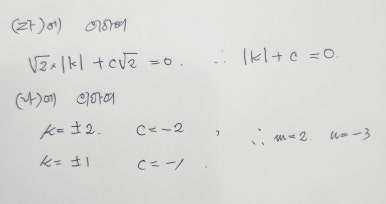 (라)에 의하여
√2×|k| + c√2 = 0. ∴ |k| + c = 0.
(나)에 의하여
k = ±2. c = -2 , ∴ m = 2. n = -3
k = ±1 c = -1 .